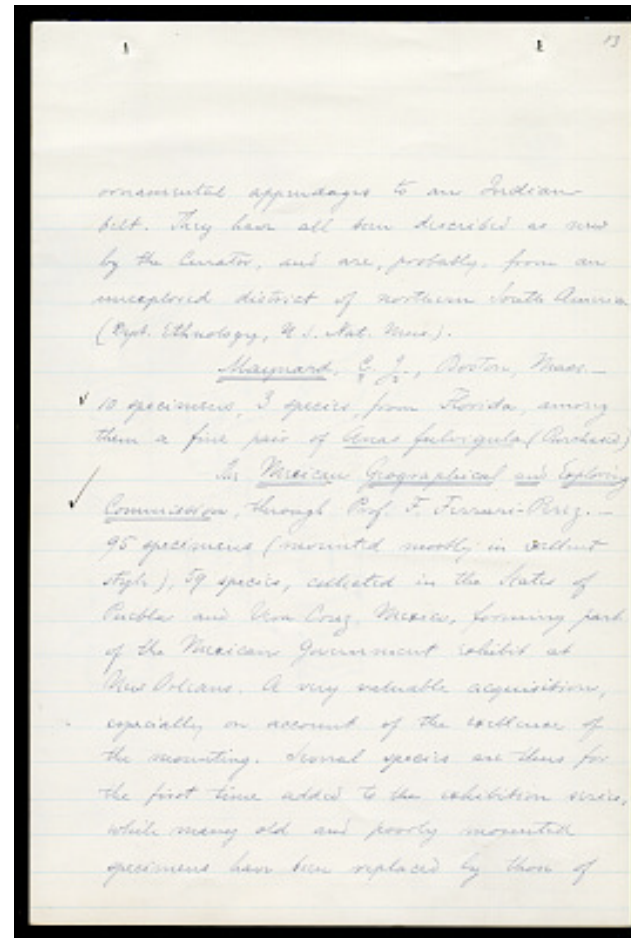 13
ornamental appendages to an Indian
belt. They have all been described as new
by the Curator, and are, probably, from an
unexplored district of northern South America
(Dept. Ethnology, U.S. Nat. Mus.).
Maynard, C. J., Boston, Mass. —
10 specimens, 3 species, from Florida, among
them a fine pair of Anas fulvigula (Purchased)
The Mexican Geographical and Exploring
Commission, through Prof. F. Ferrari-Perez. —
95 specimens (mounted mostly in excellent
style), 59 species, collected in the States of
Puebla and Vera Cruz, Mexico, forming part
of the Mexican Government exhibit at
New Orleans. A very valuable acquisition,
especially on account of the excellence of
the mounting. Several species are thus for
the first time added to the exhibition series,
while many old and poorly mounted
specimens have been replaced by those of